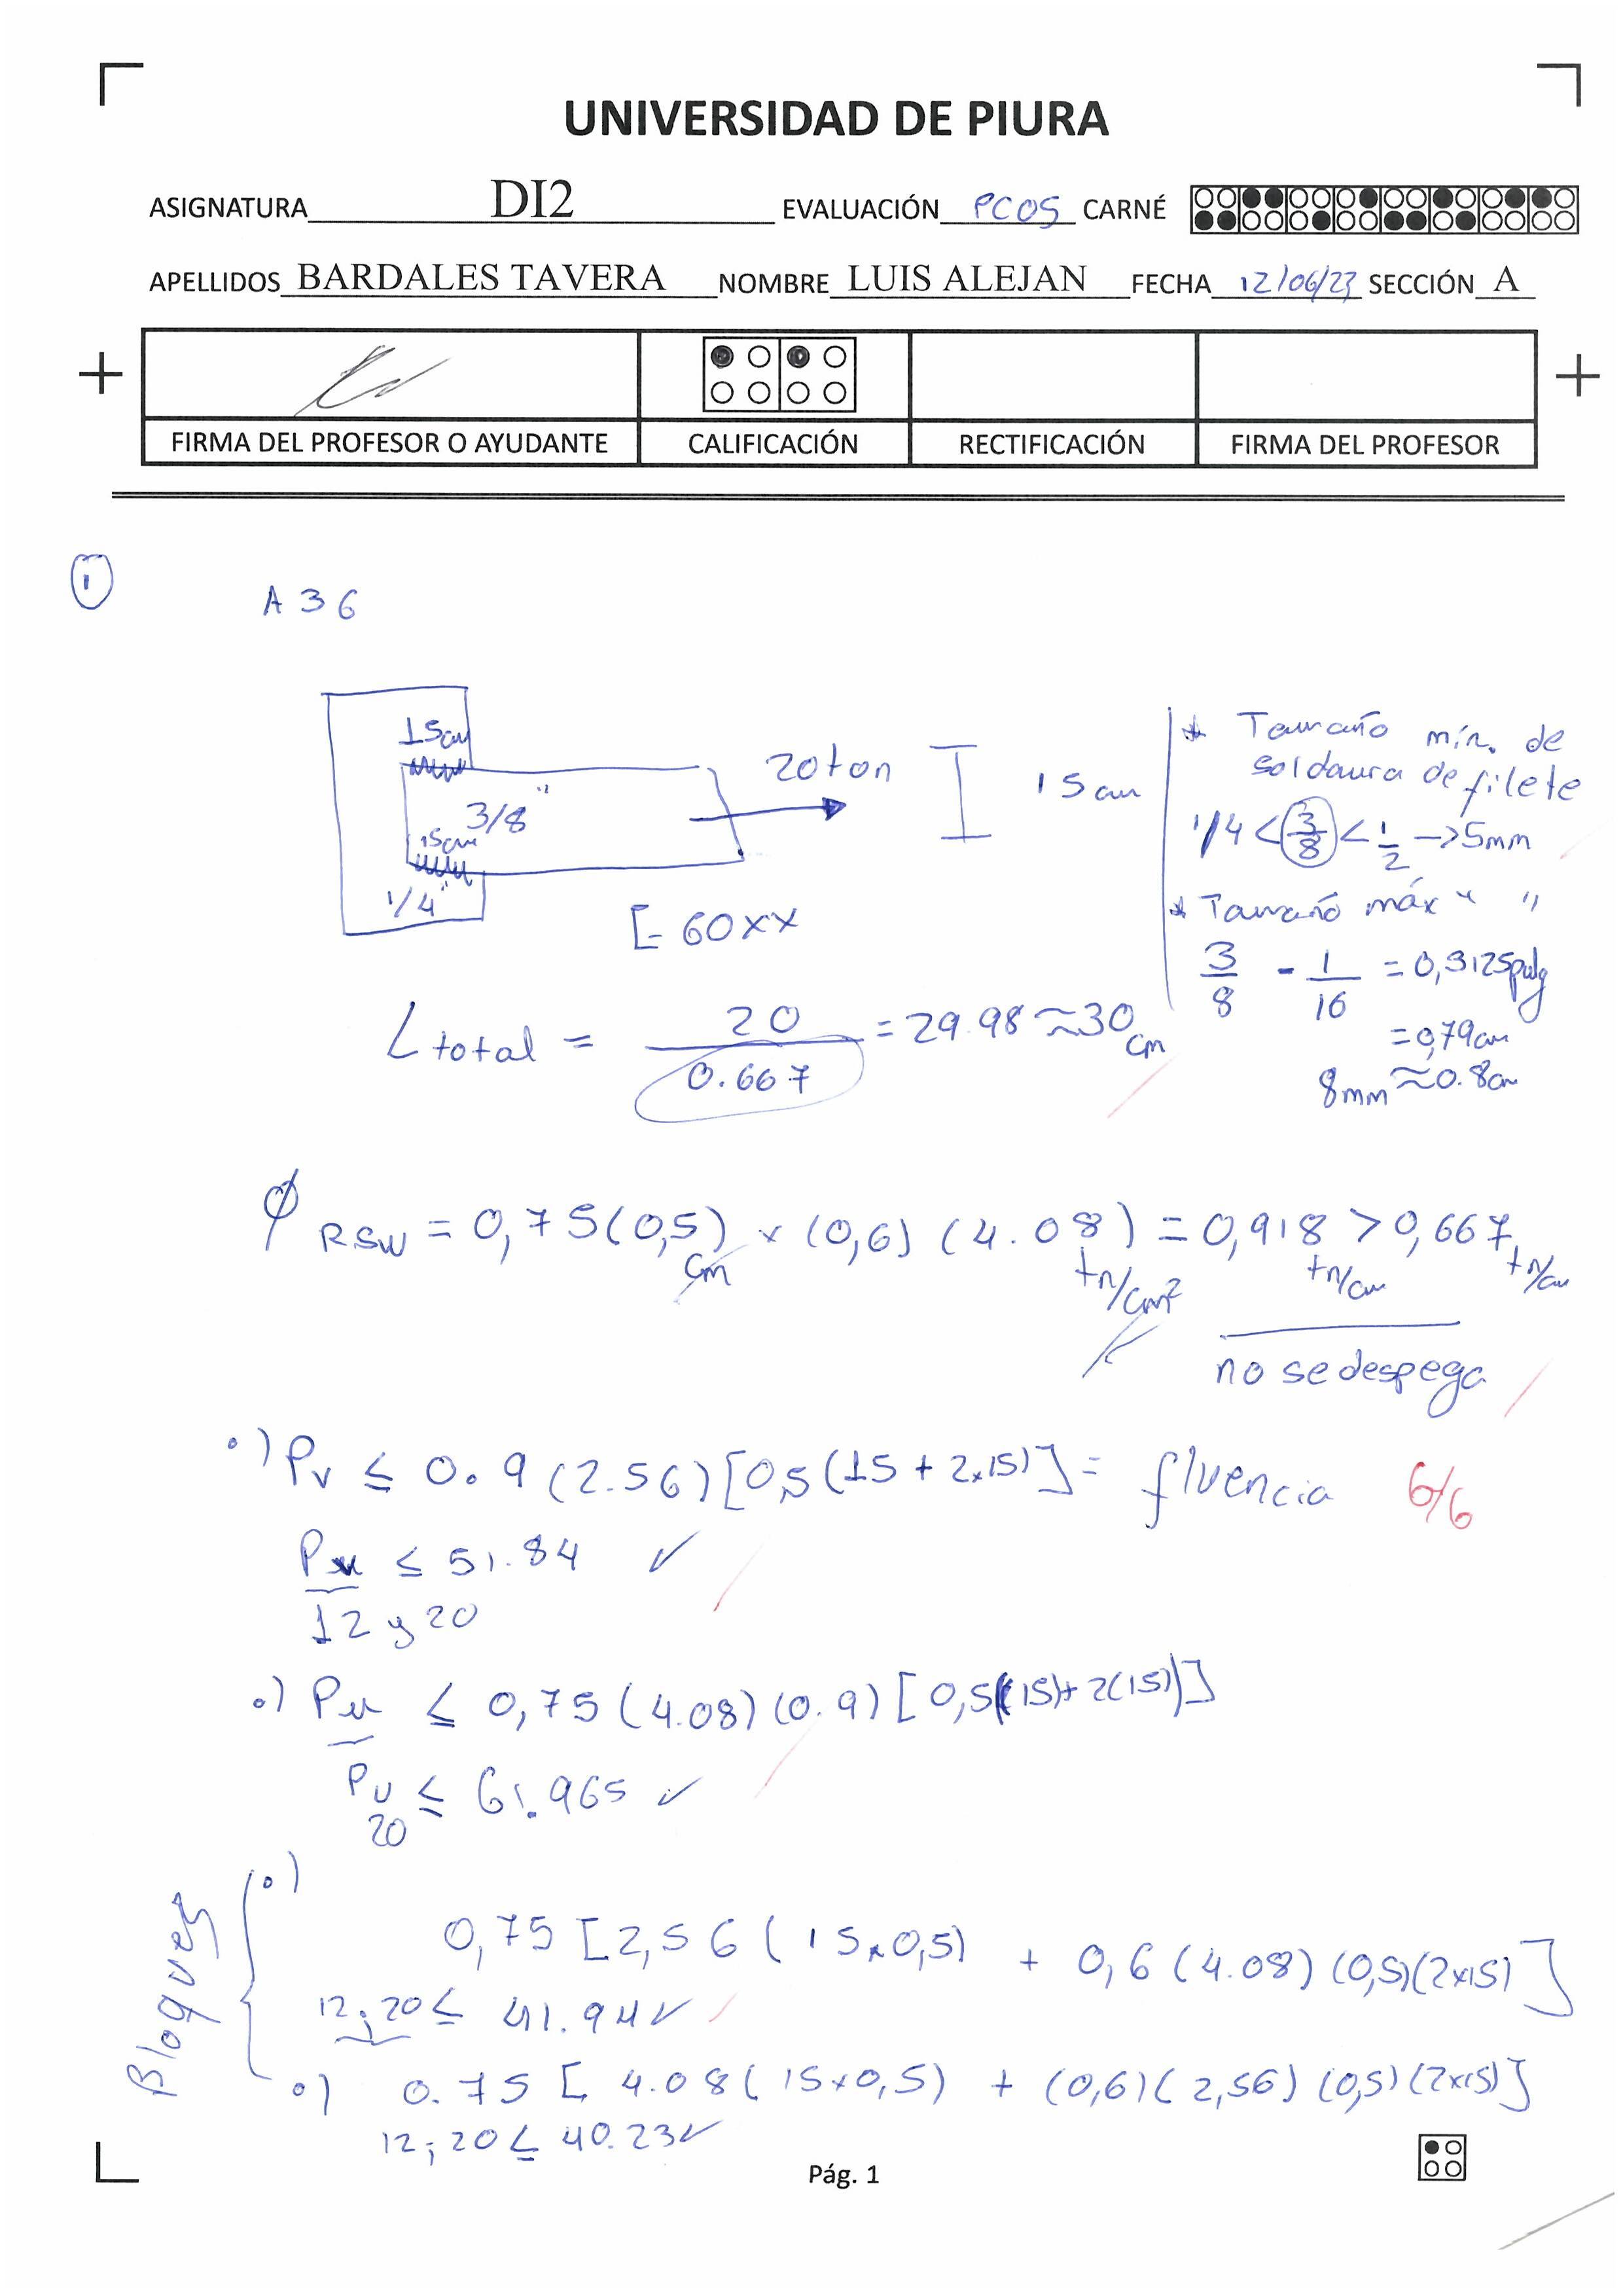 UNIVERSIDAD DE PIURA
ASIGNATURA DI2 EVALUACIÓN PC05 CARNÉ
APELLIDOS BARDALES TAVERA NOMBRE LUIS ALEJAN FECHA 12/06/23 SECCIÓN A
FIRMA DEL PROFESOR O AYUDANTE CALIFICACIÓN RECTIFICACIÓN FIRMA DEL PROFESOR
1
A 36
15cm
3/8"
15cm
1/4"
20ton
15cm
E-60XX
* Tamaño mín. de
soldaura de filete
1/4 < 3/8 < 1/2 -> 5mm
* Tamaño máx " "
3/8 - 1/16 = 0,3125pulg
= 0,79cm
8mm ≈ 0.8cm
L total = 20/0.667 = 29.98 ≈ 30 cm
Ø RSW = 0,75(0,5) x (0,6) (4.08) = 0,918 > 0,667
cm tn/cm² tn/cm tn/cm
no se despega
•) Pv ≤ 0.9 (2.56) [0,5(15 + 2x15)] = fluencia 6/6
Pu ≤ 51.84 ✓
12 y 20
•) Pu ≤ 0,75 (4.08) (0.9) [0,5(15)+ 2(15))]
PU ≤ 61.965 ✓
20
Bloques
•)
0,75 [2,56 ( 15x0,5) + 0,6 (4.08) (0,5)(2x15)]
12; 20 ≤ 41.94 ✓
•) 0.75 [ 4.08( 15x0,5) + (0,6)( 2,56) (0,5) (2x15)]
12; 20 ≤ 40.23 ✓
Pág. 1